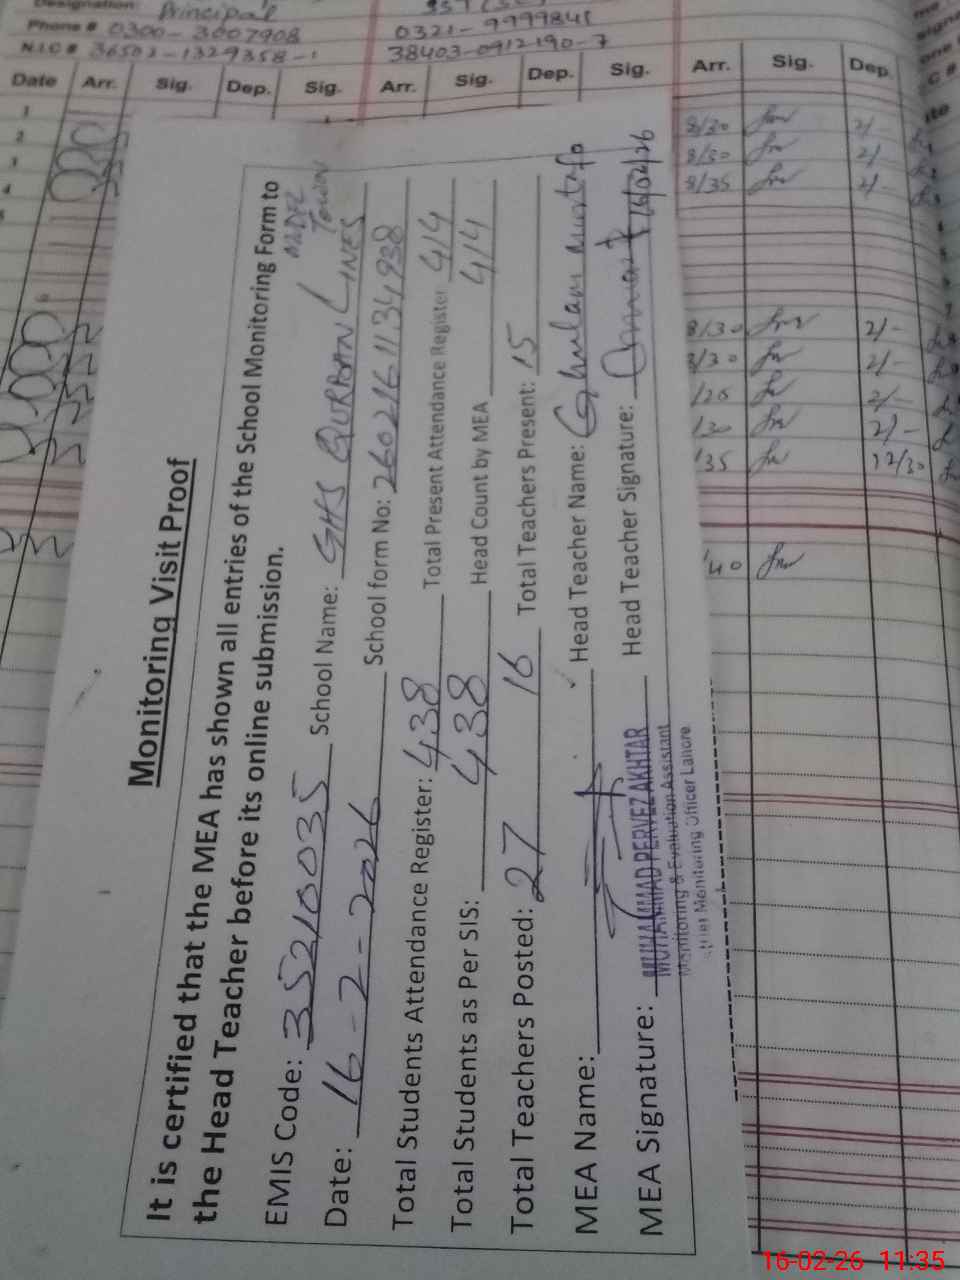 Designation: Principal
Phone # 0300-3007908 0321-9999841
N.I.C # 36502-1329358-1 38403-0912190-7
Date Arr. Sig. Dep. Sig. Arr. Sig. Dep. Sig. Arr. Sig. Dep.
1
2
3
4
8/30 2/-
8/30 2/-
8/35 2/-
8/30 2/-
8/30 2/-
/20 2/-
/30 2/-
/35 12/30
/40
Monitoring Visit Proof
It is certified that the MEA has shown all entries of the School Monitoring Form to
the Head Teacher before its online submission.
EMIS Code: 35210035 School Name: GHS QURBAN LINES
Date: 16-2-2026 School form No: 2602161134938
Total Students Attendance Register: 438 Total Present Attendance Register 414
Total Students as Per SIS: 438 Head Count by MEA 414
Total Teachers Posted: 27 16 Total Teachers Present: 15
MEA Name: Head Teacher Name: Ghulam Mustafa
MEA Signature: Head Teacher Signature: 16/02/26
MUHAMMAD PERVEZ AKHTAR
Monitoring & Evaluation Assistant
Monitoring Officer Lahore
16-02-26 11:35